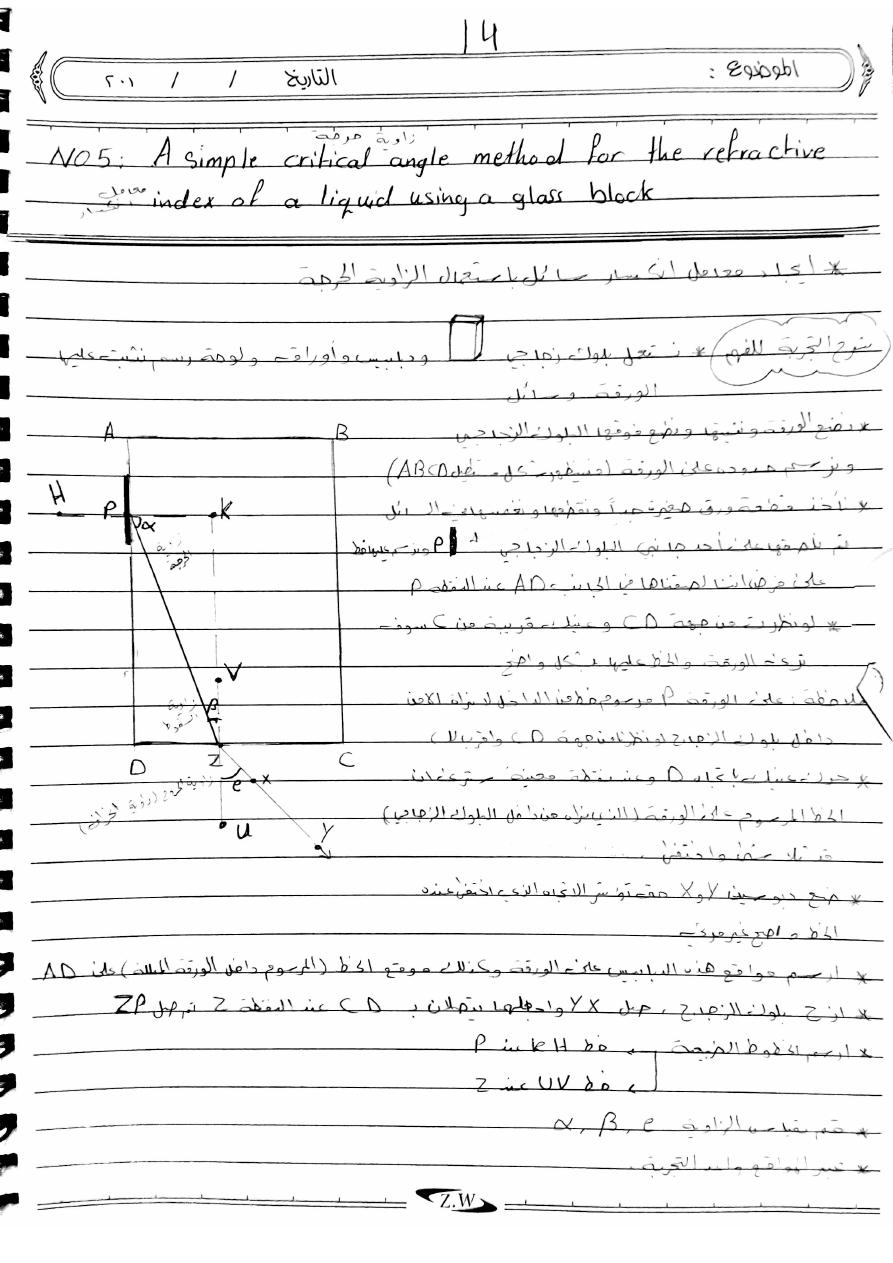 14
الموضوع :
التاريخ / / ٢٠١
زاوية حرجة
NO5: A simple critical angle method for the refractive
معامل انكسار
index of a liquid using a glass block
* ايجاد معامل انكسار سائل باستعمال الزاوية الحرجة
شرح التجربة للفهم * نستعمل بلوك زجاجي ودبابيس وأوراق ولوحة رسم نثبت عليها
الورقة وسائل
* نضع الورقة ونثبتها ونضع فوقها البلوك الزجاجي
ونرسم حدوده على الورقة (فسيظهر شكل مستطيل ABCD)
* نأخذ قطعة ورق صغيرة جداً ونقطعها ونغمسها في السائل
ثم نلصقها على أحد جانبي البلوك الزجاجي P ونرسم عليها خط
على فرض اننا لصقناها في الجانب AD عند النقطة P
* لو نظرت من جهة CD وعينك قريبة من C سوف
ترى الورقة والخط عليها بشكل واضح
ملاحظة : على الورقة P مرسوم خط من الداخل لا نراه الا من
داخل بلوك الزجاج لو نظرنا من جهة CD
* حرك عينك باتجاه D وعند نقطة معينة سترى ان
الخط المرسوم على الورقة (الذي نراه من داخل البلوك الزجاجي)
قد تلاشى واختفى .
* ضع دبوسين X و Y حتى تؤشر الاتجاه الذي اختفى عنده
الخط واصبح غير مرئي
* ارسم مواقع هذه الدبابيس على الورقة وكذلك موقع الخط (المرسوم داخل الورقة المبللة) على AD
* ازح بلوك الزجاج ، صل YX واجعلها يتصلان بـ CD عند النقطة Z ثم صل ZP
* ارسم الخطوط الطبيعة خط KH عند P
خط UV عند Z
* قم بقياس الزاوية α, β, e
* غير المواقع واعد التجربة .
A
B
H
P
α
K
زاوية حرجة
V
زاوية السقوط
β
D
Z
C
e
x
زاوية الخروج (زاوية
U
Y
Z.W